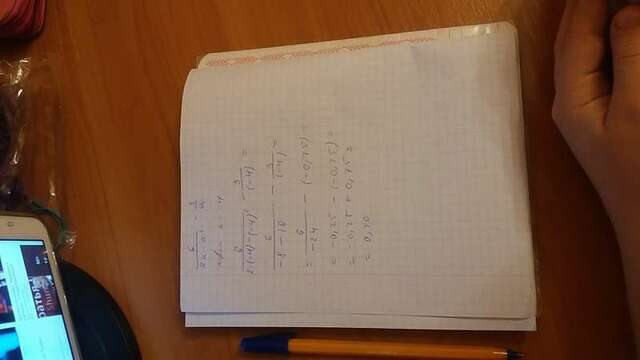 братья
Shum
6/(2a - a²) - 3/a
при a = -4
6/(2·(-4)-(-4)²) - 3/(-4) =
6/(-8-16) - 3/(-4) =
= 6/(-24) - (-0,75) =
= -0,25 - (-0,75) =
= -0,25 + 0,75 =
= 0,50